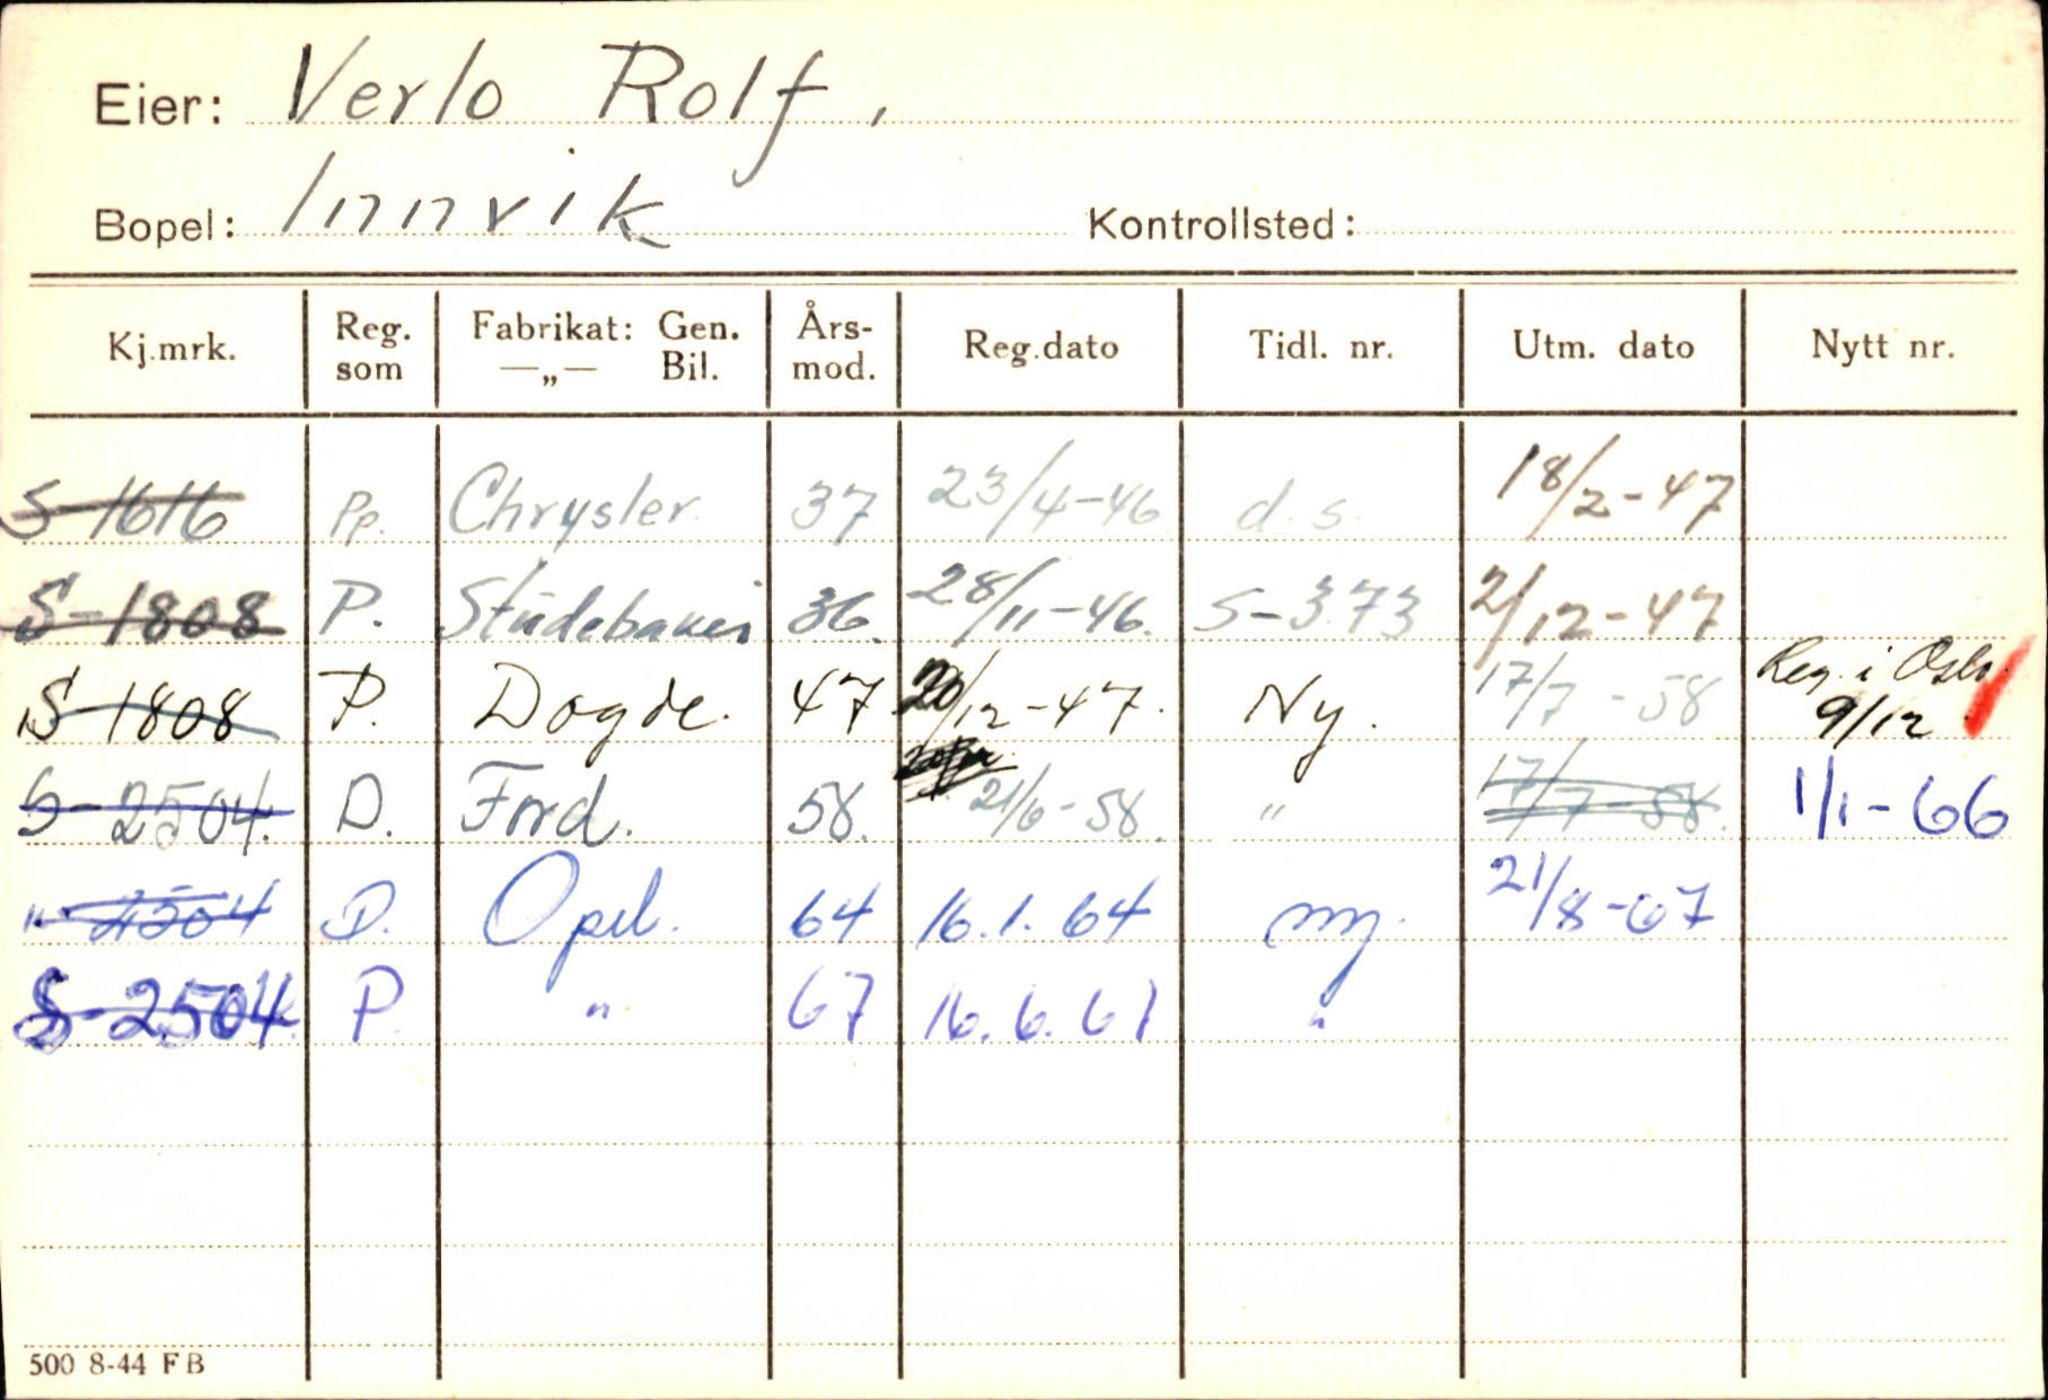 Eier: Verlo Rolf,
Bopel: Innvik Kontrollsted:
Kj.mrk. Reg. som Fabrikat: Gen. —„— Bil. Års-mod. Reg.dato Tidl. nr. Utm. dato Nytt nr.
S-1616 Pp. Chrysler 37 23/4-46 d.s. 18/2-47
S-1808 P. Studebaker 36. 28/11-46. S-373 2/12-47
S-1808 P. Dogde. 47 20/12-47. Ny. 17/7-58 Reg. i Oslo. 9/12
S-2504. D. Ford. 58. 21/6-58. " 17/7-58. 1/1-66
" 2504 D. Opel. 64 16.1.64 ny. 21/8-67
S-2504. P " 67 16.6.67 "
500 8-44 F B